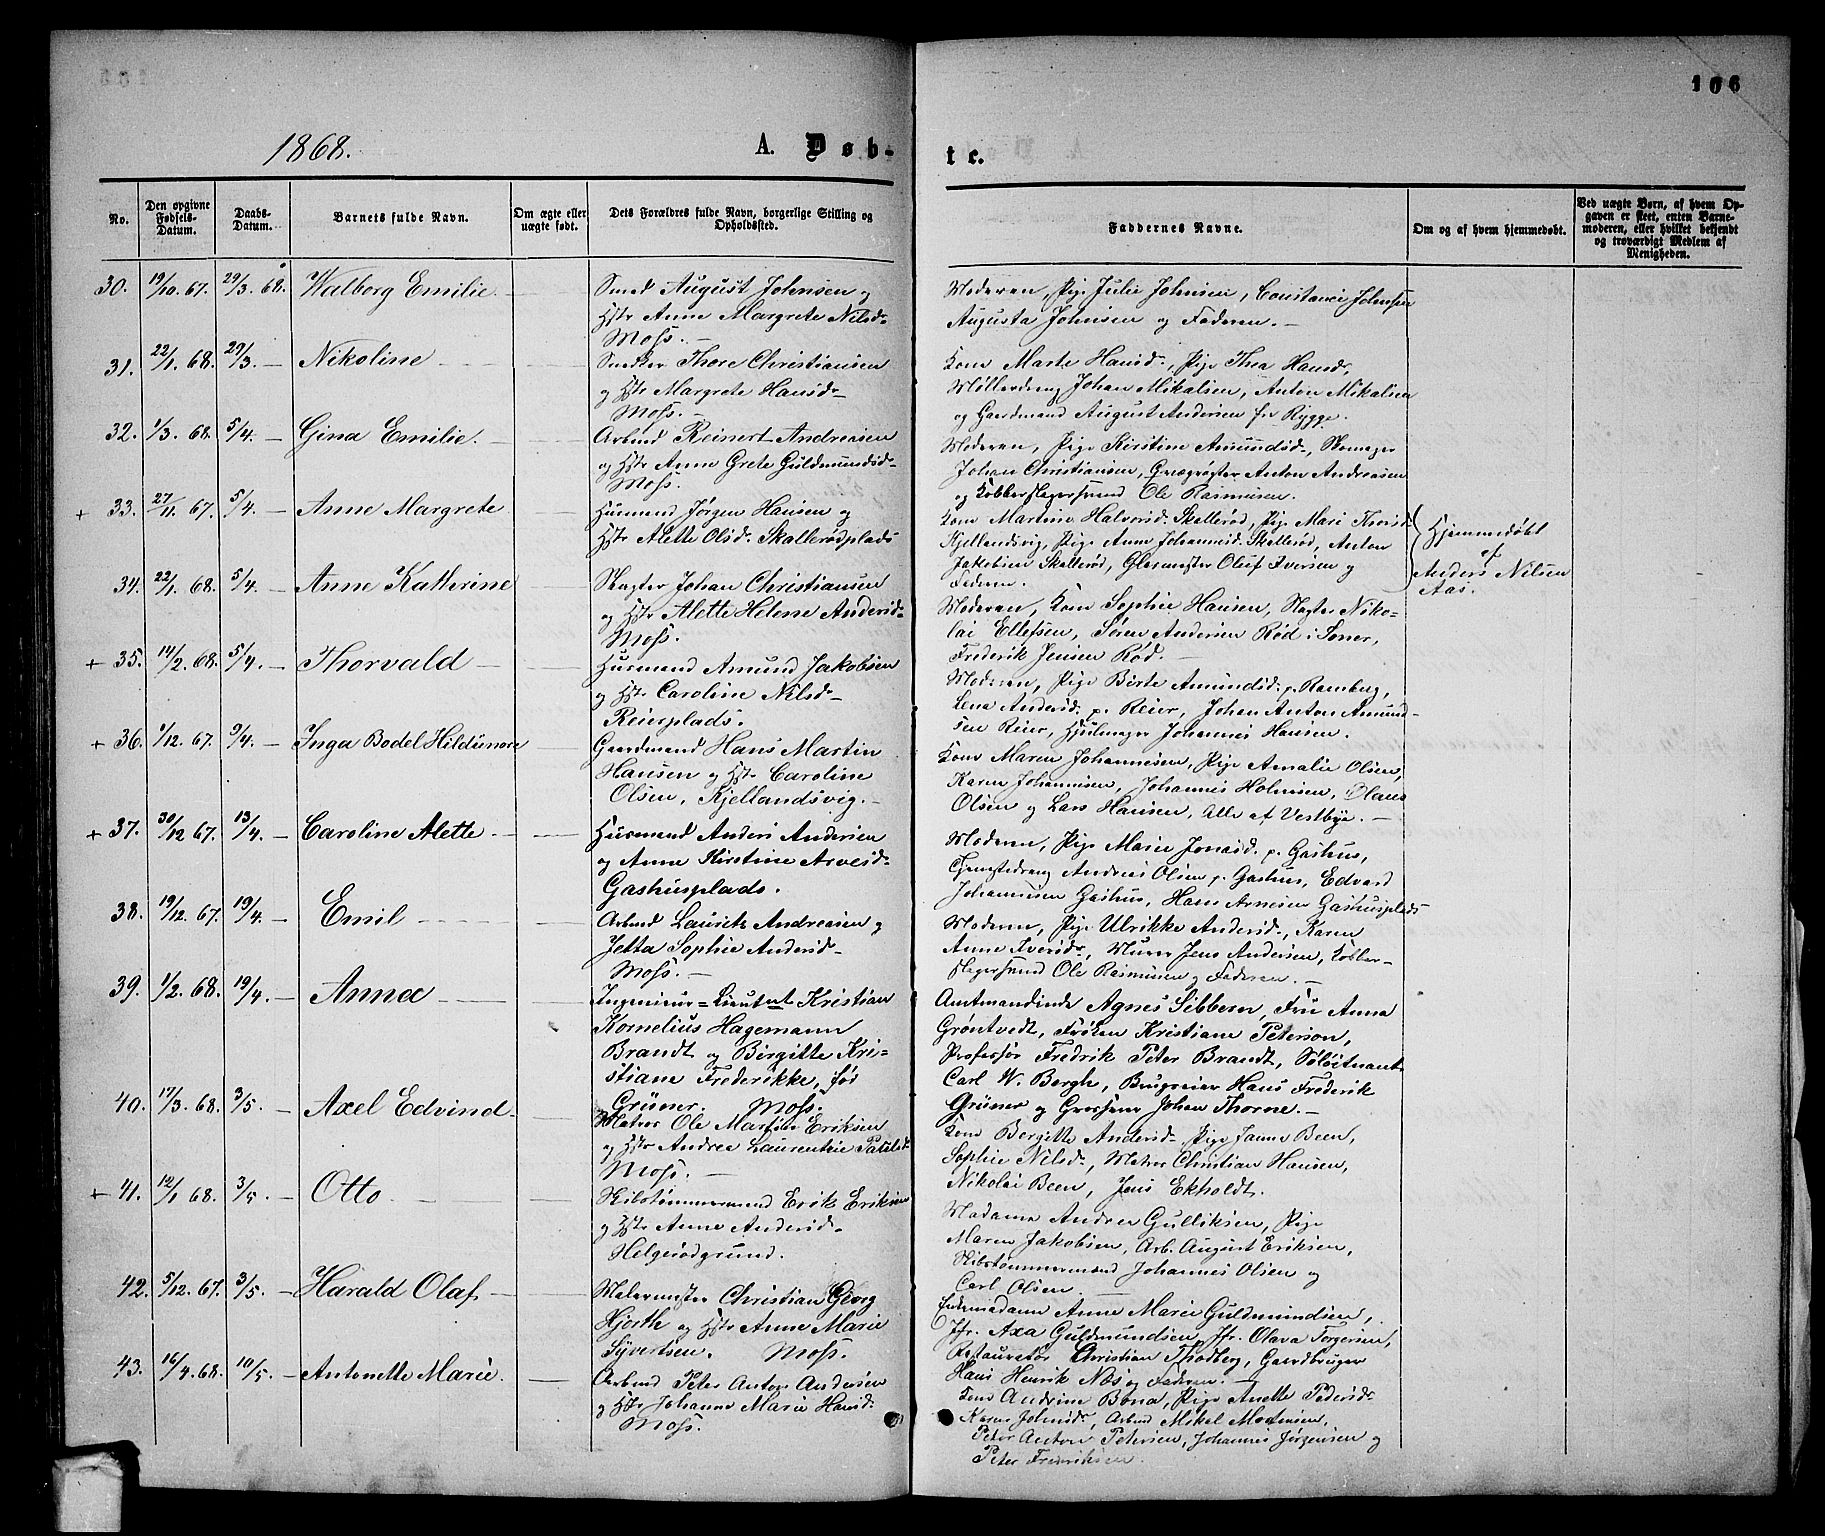 106
1868.
A. Døb-
te.
No.
Den opgivne Fødsels-Datum.
Daabs-Datum.
Barnets fulde Navn.
Om ægte eller uægte født.
Dets Forældres fulde Navn, borgerlige Stilling og Opholdssted.
Faddernes Navne.
Om og af hvem hjemmedøbt.
Ved uægte Børn, af hvem Opgaven er skeet, enten Barnemoderen, eller hvilket bekjendt og troværdigt Medlem af Menigheden.
30. 19/10. 67. 29/3. 68. Walborg Emilie.
Smed August Johnsen og
Hstr Anne Margrete Nilsd.
Moss.
Moderen, Pige Julie Johnsen, Constance Johnsen
Augusta Johnsen og Faderen.
31. 22/1. 68. 29/3. Nikoline
Snedker Thore Christiansen
og Hstr Margrete Hansd.
Moss.
Kone Marte Hansd., Pige Thea Hansd.
Møllerdreng Johan Mikalsen, Anton Mikalsen
og Gaardmand August Andersen fra Rygge.
32. 1/3. 68. 5/4. Gina Emilie.
Arbmd Reinert Andreasen
og Hstr Anne Grete Guldmundsd.
Moss.
Moderen, Pige Kirstine Amundsd., Skomager
Johan Christiansen, Grægrøgter Anton Andreasen
og Kobberslagersvend Ole Rasmusen.
+ 33. 27/11. 67. 5/4. Anne Margrete
Husmand Jørgen Hansen og
Hstr Alette Olsd. Skallerødplads
Kone Martine Halvorsd. Skallerød, Pige Mari Thorsd.
Kjellandsvig, Pige Anne Johannesd. Skallerød, Anton
Jakobsen Skallerød, Glasmester Oluf Iversen og
Faderen.
Hjemmedøbt
af
Anders Nilsen
Aas.
34. 22/1. 68. 5/4. Anne Kathrine
Slagter Johan Christiansen
og Hstr Alette Helene Andersd.
Moss.
Moderen, Kone Sophie Hansen, Slagter Niko-
lai Ellefsen, Søren Andersen Rød i Soner,
Frederik Jensen Rød.
+ 35. 14/2. 68. 5/4. Thorvald
Husmand Amund Jakobsen
og Hstr Caroline Nilsd.
Reierplads.
Moderen, Pige Berte Amundsd. p. Ramberg,
Lena Andersd. p. Reier, Johan Anton Amund-
sen Reier, Hjulmager Johannes Hansen.
+ 36. 1/12. 67. 9/4. Inga Bodel Hildimore
Gaardmand Hans Martin
Hansen og Hstr Caroline
Olsen, Kjellandsvig.
Kone Maren Johannesen, Pige Amalie Olsen,
Karen Johannesen, Johannes Holmsen, Olaus
Olsen og Lars Hansen, Alle af Vestbye.
+ 37. 30/12. 67. 13/4. Caroline Alette
Husmand Anders Andersen
og Anne Kirstine Arvesd.
Gashusplads.
Moderen, Pige Marie Jonasd. p. Gashus,
Tjenestedreng Andreas Olsen p. Gashus, Edvard
Johannesen Gashus, Hans Arnesen Gashusplads
38. 19/12. 67. 19/4. Emil
Arbmd Lauritz Andreasen og
Jetta Sophie Andersd.
Moss.
Moderen, Pige Ulrikke Andersd., Karen
Anne Iversd., Murer Jens Andersen, Kobber-
slagersvend Ole Rasmusen og Faderen.
39. 1/2. 68. 19/4. Anna
Ingenieur-Lieutnt Kristian
Kornelius Hagemann
Brandt og Birgitte Kri-
stiane Frederikke, fød
Grüner. Moss.
Amtmandinde Agnes Sibbern, Fru Anna
Grøntvedt, Frøken Kristiane Peterson,
Professor Fredrik Peter Brandt, Søløitnant
Carl W. Bergh, Brugseier Hans Frederik
Grüner og Grosserer Johan Thorne.
40. 17/3. 68. 3/5. Axel Edvind
Matros Ole Martin Eriksen
og Hstr Andrea Laurentze
Moss.
Kone Bergitte Andersd., Pige Janna Been,
Sophie Nilsd., Matros Christian Hansen,
Nikolai Been, Jens Ekholdt.
+ 41. 12/1. 68. 3/5. Otto
Skibstømmermand Erik Eriksen
og Hstr Anne Andersd.
Helgerødgrund.
Madame Andrea Gulliksen, Pige
Maren Jakobsen, Arb. August Eriksen,
Skibstømmermand Johannes Olsen og
Carl Olsen
42. 5/12. 67. 3/5. Harald Olaf
Malermester Christian Georg
Hjorth og Hstr Anne Marie
Syvertsen. Moss.
Anne Marie Guldmundsen,
Jfr. Axa Guldmundsen, Jfr. Olava Torgersen,
Restauratør Christian Thodberg, Gaardbruger
Hans Henrik Næs og Faderen.
43. 16/4. 68. 10/5. Antonette Marie.
Arbmd Peter Anton Andersen
og Hstr Johanne Marie Hansd.
Moss.
Kone Andrine Bona, Pige Anette Pedersd.
Karen Johnsd., Arbmd Mikel Mortensen,
Peter Anton Petersen, Johannes Jørgensen og
Peter Fredriksen.